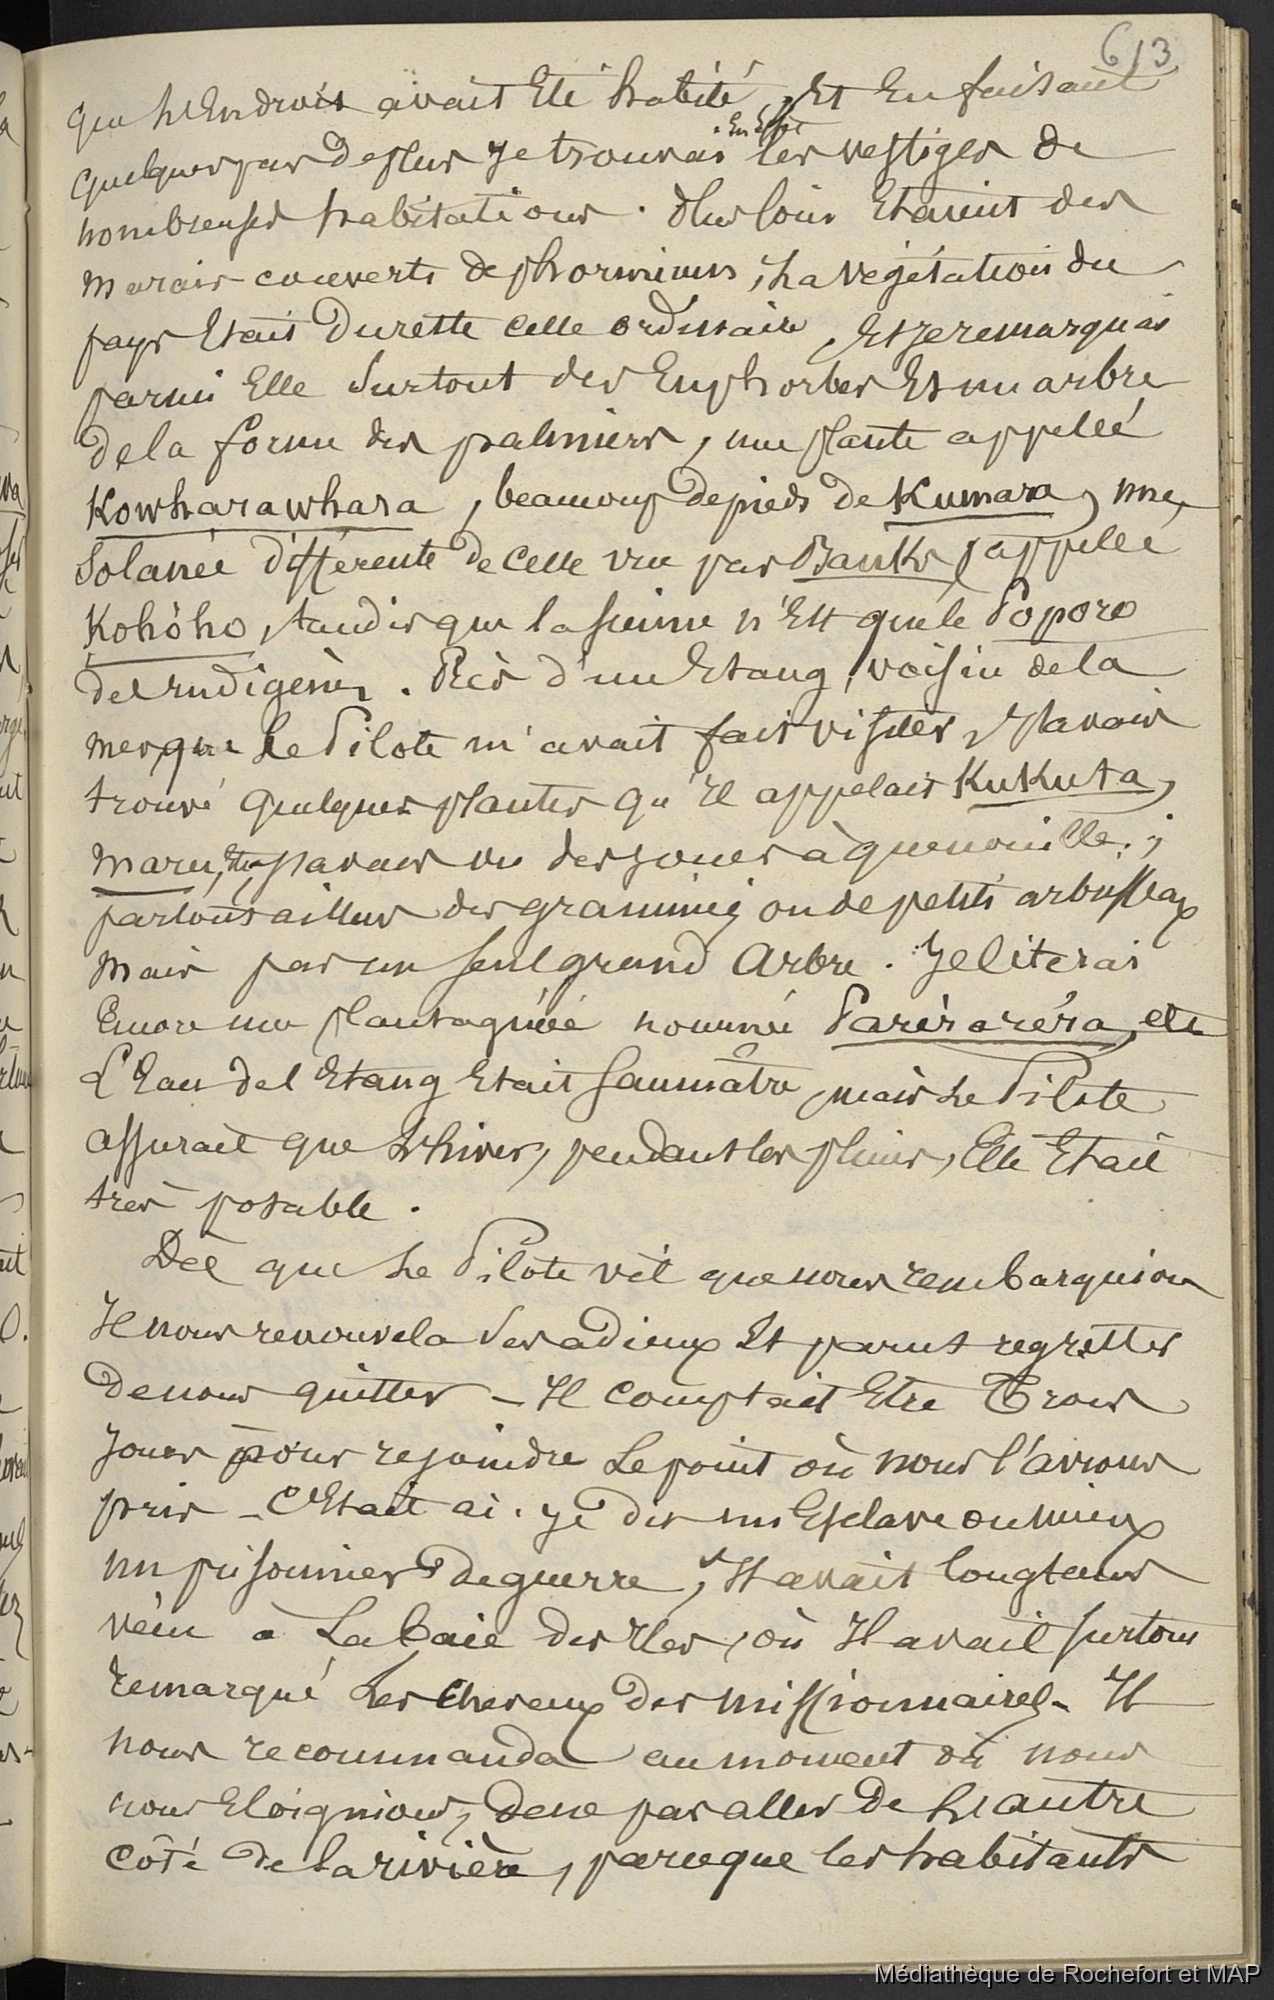 613
que l'Endroit avait Eté habité, Et En faisant
quelques pas de plus je trouvai En Effet les vestiges de
nombreuses habitations. Plus loin Etaient des
marais couverts de phormiums, La végétation du
pays Etait Dureste celle ordinaire, Et je remarquai
parmi Elle Surtout des Euphorbes Et un arbre
de la forme des palmiers, une plante appellée
Kowharawhara, beaucoup de pieds de Kumara, une
Solanée différente de celle vue par Banks, appellée
Kohôho, tandis que la sienne n'Est que le Poporo
des Indigènes. Près d'un Etang, voisin de la
mer, que Le Pilote m'avait fait visiter, J'avais
trouvé quelques plantes qu'Il appelait KuKuta,
maru, Et j'avais vu des joncs à quenouille;
partout ailleurs des graminées ou de petits arbustes
mais pas un seul grand Arbre. Je citerai
Encore une plantaginée nommée Parèrarèra, etc
L'Eau del'Etang Etait Saumâtre, mais Le Pilote
assurait que L'hiver, pendant les pluies, Elle Etait
très potable.
Dès que Le Pilote vit que nous rembarquions
Il nous renouvela Ses adieux Et parut regretter
de nous quitter - Il comptait Etre Trois
jours pour rejoindre Le point où nous l'avions
pris - C'Etait ai. je dit un Esclave ou mieux
un prisonnier de guerre, Il avait longtems
vécu a La baie des Iles, où Il avait surtout
remarqué Les Cheveux des missionnaires - Il
nous recommanda au moment où nous
nous Eloignions, de ne pas aller De L'autre
côté de la rivière, parceque les habitants
Médiathèque de Rochefort et MAP